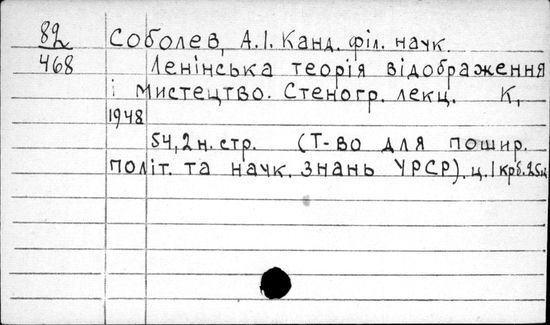 82 Соболев, А.І. Канд. філ. наук.
468 Ленінська теорія відображення
і мистецтво. Стеногр. лекц. К,
1948
54,2 н. стр. (Т-во для пошир.
політ. та наук. знань УРСР). ц. 1 крб. 25к